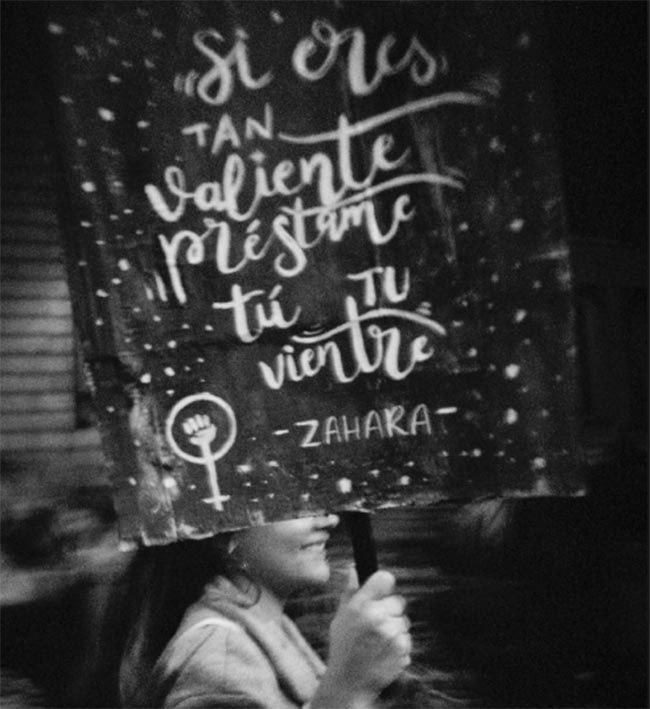 "Si eres
TAN
valiente
préstame
tú TU
vientre"
-ZAHARA-